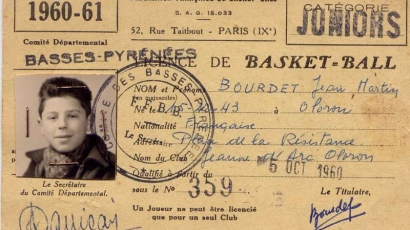 1960-61
S.A.G. 15.033
CATÉGORIE
JUNIORS
52, Rue Taitbout - PARIS (IXe)
Comité Départemental
BASSES-PYRÉNÉES
LICENCE DE BASKET-BALL
NOM et Prénoms BOURDET Jean Martin
(en majuscules)
Né le -43 à Oloron
Nationalité Française
Adresse Place de la Résistance
Nom du Club Jeanne d'Arc Oloron
Qualifié à partir du 5 OCT 1960
sous le No 359
Le Secrétaire
du Comité Départemental.
Le Titulaire,
Un Joueur ne peut être licencié
que pour un seul Club
Bourdet